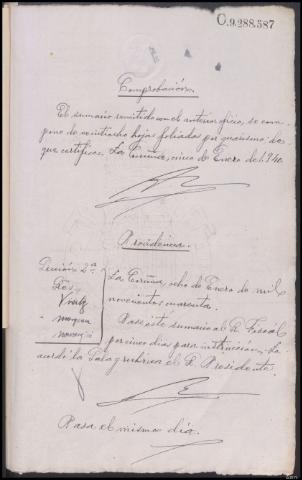 O.9.288.587
Comprobación
El sumario remitido con el anterior oficio, se com-
pone de veintiocho hojas foliadas
que certifico. La Coruña, cinco de Enero de 1.940.
Providencia.
Sección 2ª
La Coruña, ocho de Enero de mil
novecientos cuarenta.
Pase este sumario al Sr. Fiscal
por cinco días para instrucción. Lo
acordó la Sala y rubrica el Sr. Presidente.
Pasa el mismo día.